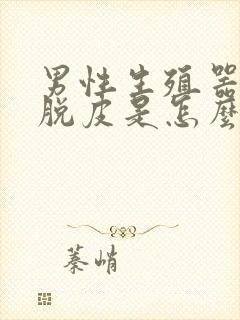 男性生殖器
脱皮是怎麼
蓁峭